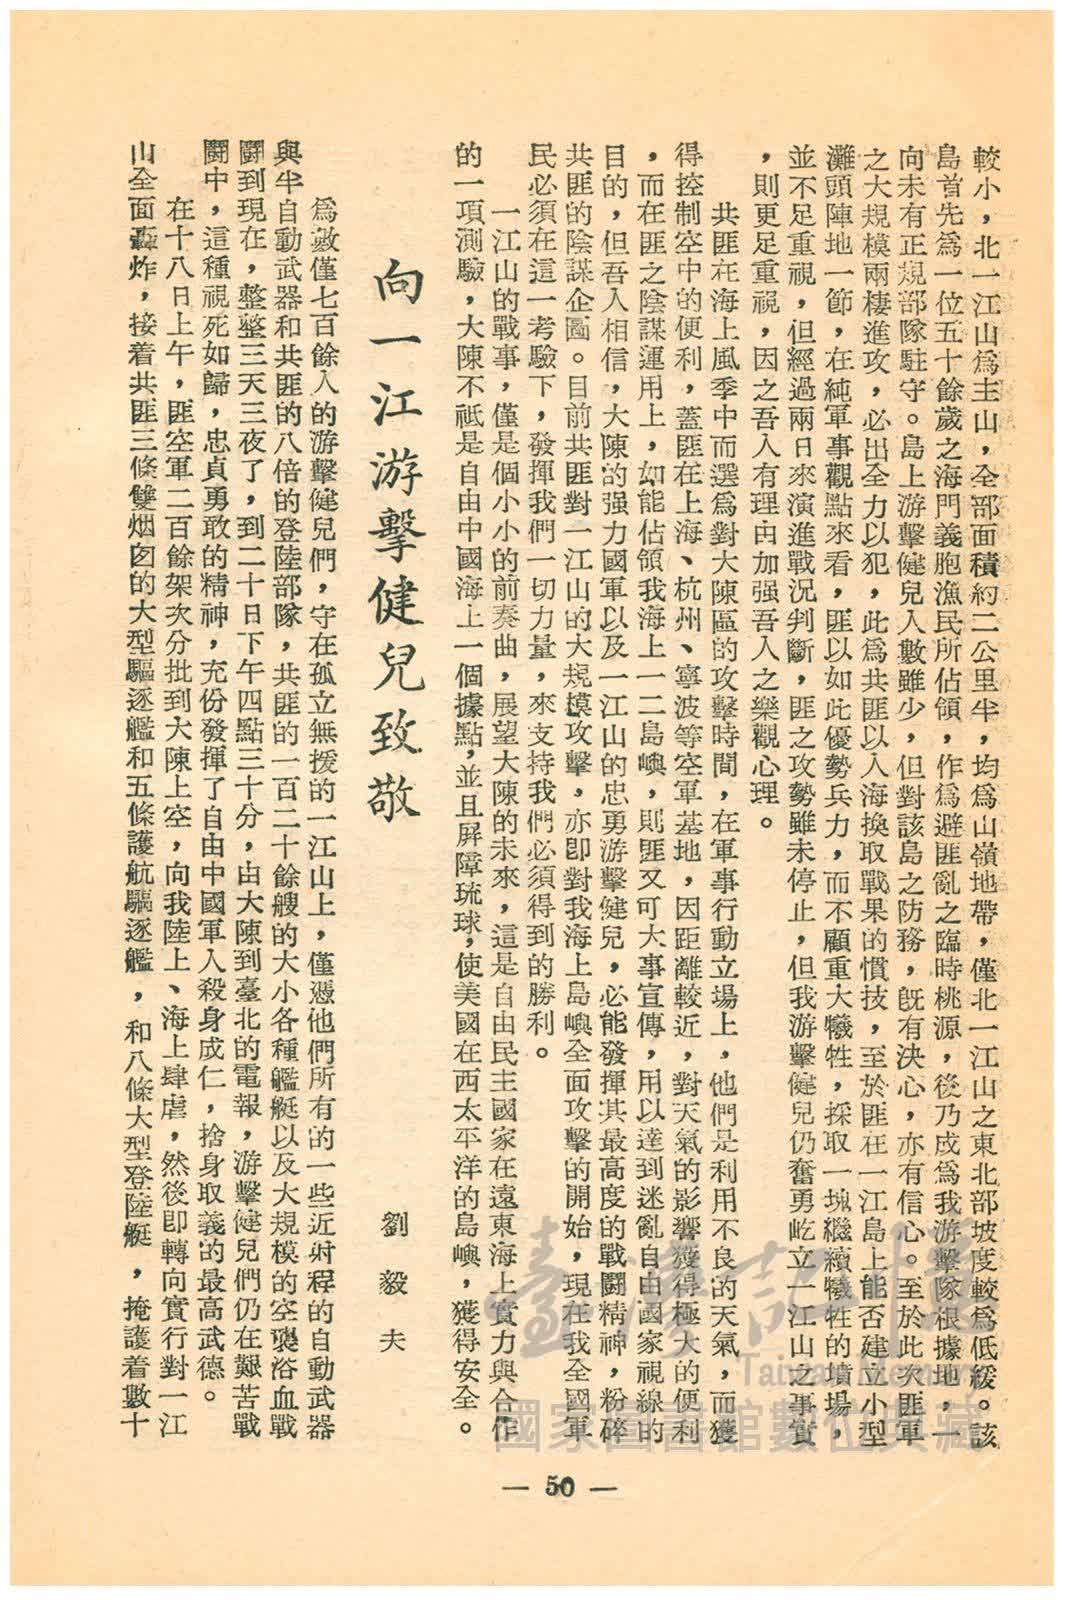 較小，北一江山爲主山，全部面積約二公里半，均爲山嶺地帶，僅北一江山之東北部坡度較爲低緩。該
島首先爲一位五十餘歲之海門義胞漁民所佔領，作爲避匪亂之臨時桃源，後乃成爲我游擊隊根據地，一
向未有正規部隊駐守。島上游擊健兒人數雖少，但對該島之防務，既有決心，亦有信心。至於此次匪軍
之大規模兩棲進攻，必出全力以犯，此爲共匪以人海換取戰果的慣技，至於匪在一江島上能否建立小型
灘頭陣地一節，在純軍事觀點來看，匪以如此優勢兵力，而不顧重大犧牲，採取一塊繼續犧牲的墳場，
並不足重視，但經過兩日來演進戰況判斷，匪之攻勢雖未停止，但我游擊健兒仍奮勇屹立一江山之事實
，則更足重視，因之吾人有理由加强吾人之樂觀心理。
共匪在海上風季中而選爲對大陳區的攻擊時間，在軍事行動立場上，他們是利用不良的天氣，而獲
得控制空中的便利，蓋匪在上海、杭州、寧波等空軍基地，因距離較近，對天氣的影響獲得極大的便利
，而在匪之陰謀運用上，如能佔領我海上一二島嶼，則匪又可大事宣傳，用以達到迷亂自由國家視線的
目的，但吾人相信，大陳的强力國軍以及一江山的忠勇游擊健兒，必能發揮其最高度的戰鬪精神，粉碎
共匪的陰謀企圖。目前共匪對一江山的大規模攻擊，亦卽對我海上島嶼全面攻擊的開始，現在我全國軍
民必須在這一考驗下，發揮我們一切力量，來支持我們必須得到的勝利。
一江山的戰事，僅是個小小的前奏曲，展望大陳的未來，這是自由民主國家在遠東海上實力與合作
的一項測驗，大陳不祇是自由中國海上一個據點，並且屏障琉球，使美國在西太平洋的島嶼，獲得安全。
向一江游擊健兒致敬
劉毅夫
爲數僅七百餘人的游擊健兒們，守在孤立無援的一江山上，僅憑他們所有的一些近射程的自動武器
與半自動武器和共匪的八倍的登陸部隊，共匪的一百二十餘艘的大小各種艦艇以及大規模的空襲浴血戰
鬪到現在，整整三天三夜了，到二十日下午四點三十分，由大陳到臺北的電報，游擊健兒們仍在艱苦戰
鬪中，這種視死如歸，忠貞勇敢的精神，充份發揮了自由中國軍人殺身成仁，捨身取義的最高武德。
在十八日上午，匪空軍二百餘架次分批到大陳上空，向我陸上、海上肆虐，然後卽轉向實行對一江
山全面轟炸，接着共匪三條雙烟囱的大型驅逐艦和五條護航驅逐艦，和八條大型登陸艇，掩護着數十
— 50 —
臺灣記憶
Taiwan Memory
國家圖書館數位典藏